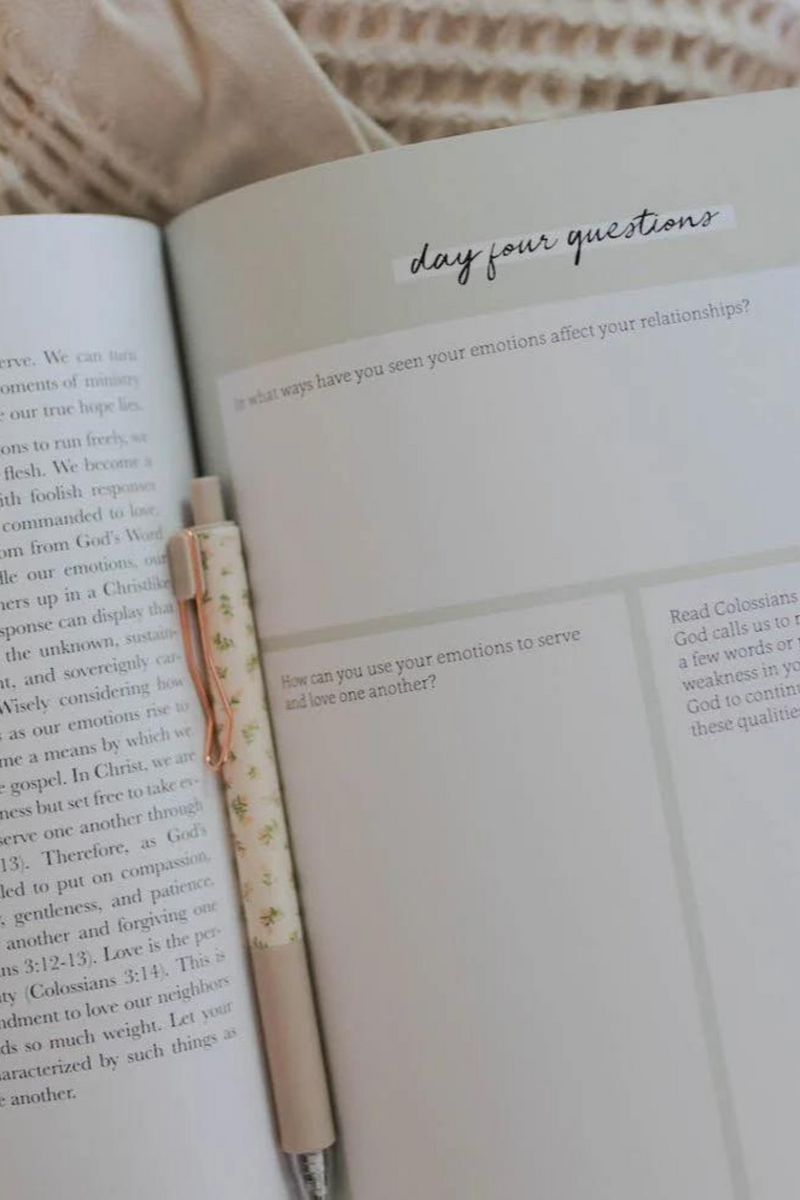 erve. We can turn
oments of ministry
e our true hope lies.
ons to run freely, we
flesh. We become a
ith foolish responses
commanded to love.
om from God's Word
dle our emotions, our
hers up in a Christlike
sponse can display that
the unknown, sustain-
nt, and sovereignly car-
Wisely considering how
s as our emotions rise to
me a means by which we
e gospel. In Christ, we are
ness but set free to take ev-
serve one another through
13). Therefore, as God's
led to put on compassion,
, gentleness, and patience,
another and forgiving one
ns 3:12-13). Love is the per-
ty (Colossians 3:14). This is
ndment to love our neighbors
ds so much weight. Let your
aracterized by such things as
e another.
day four questions
In what ways have you seen your emotions affect your relationships?
How can you use your emotions to serve
and love one another?
Read Colossians
God calls us to
a few words or
weakness in yo
God to continu
these qualities